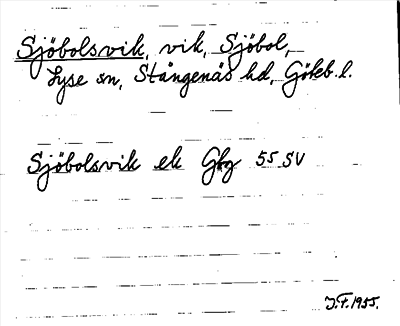 Sjöbolsvik, vik, Sjöbol,
Lyse sn, Stångenäs hd, Göteb. l.
Sjöbolsvik ek Gbg 55 SV
J.F. 1955.